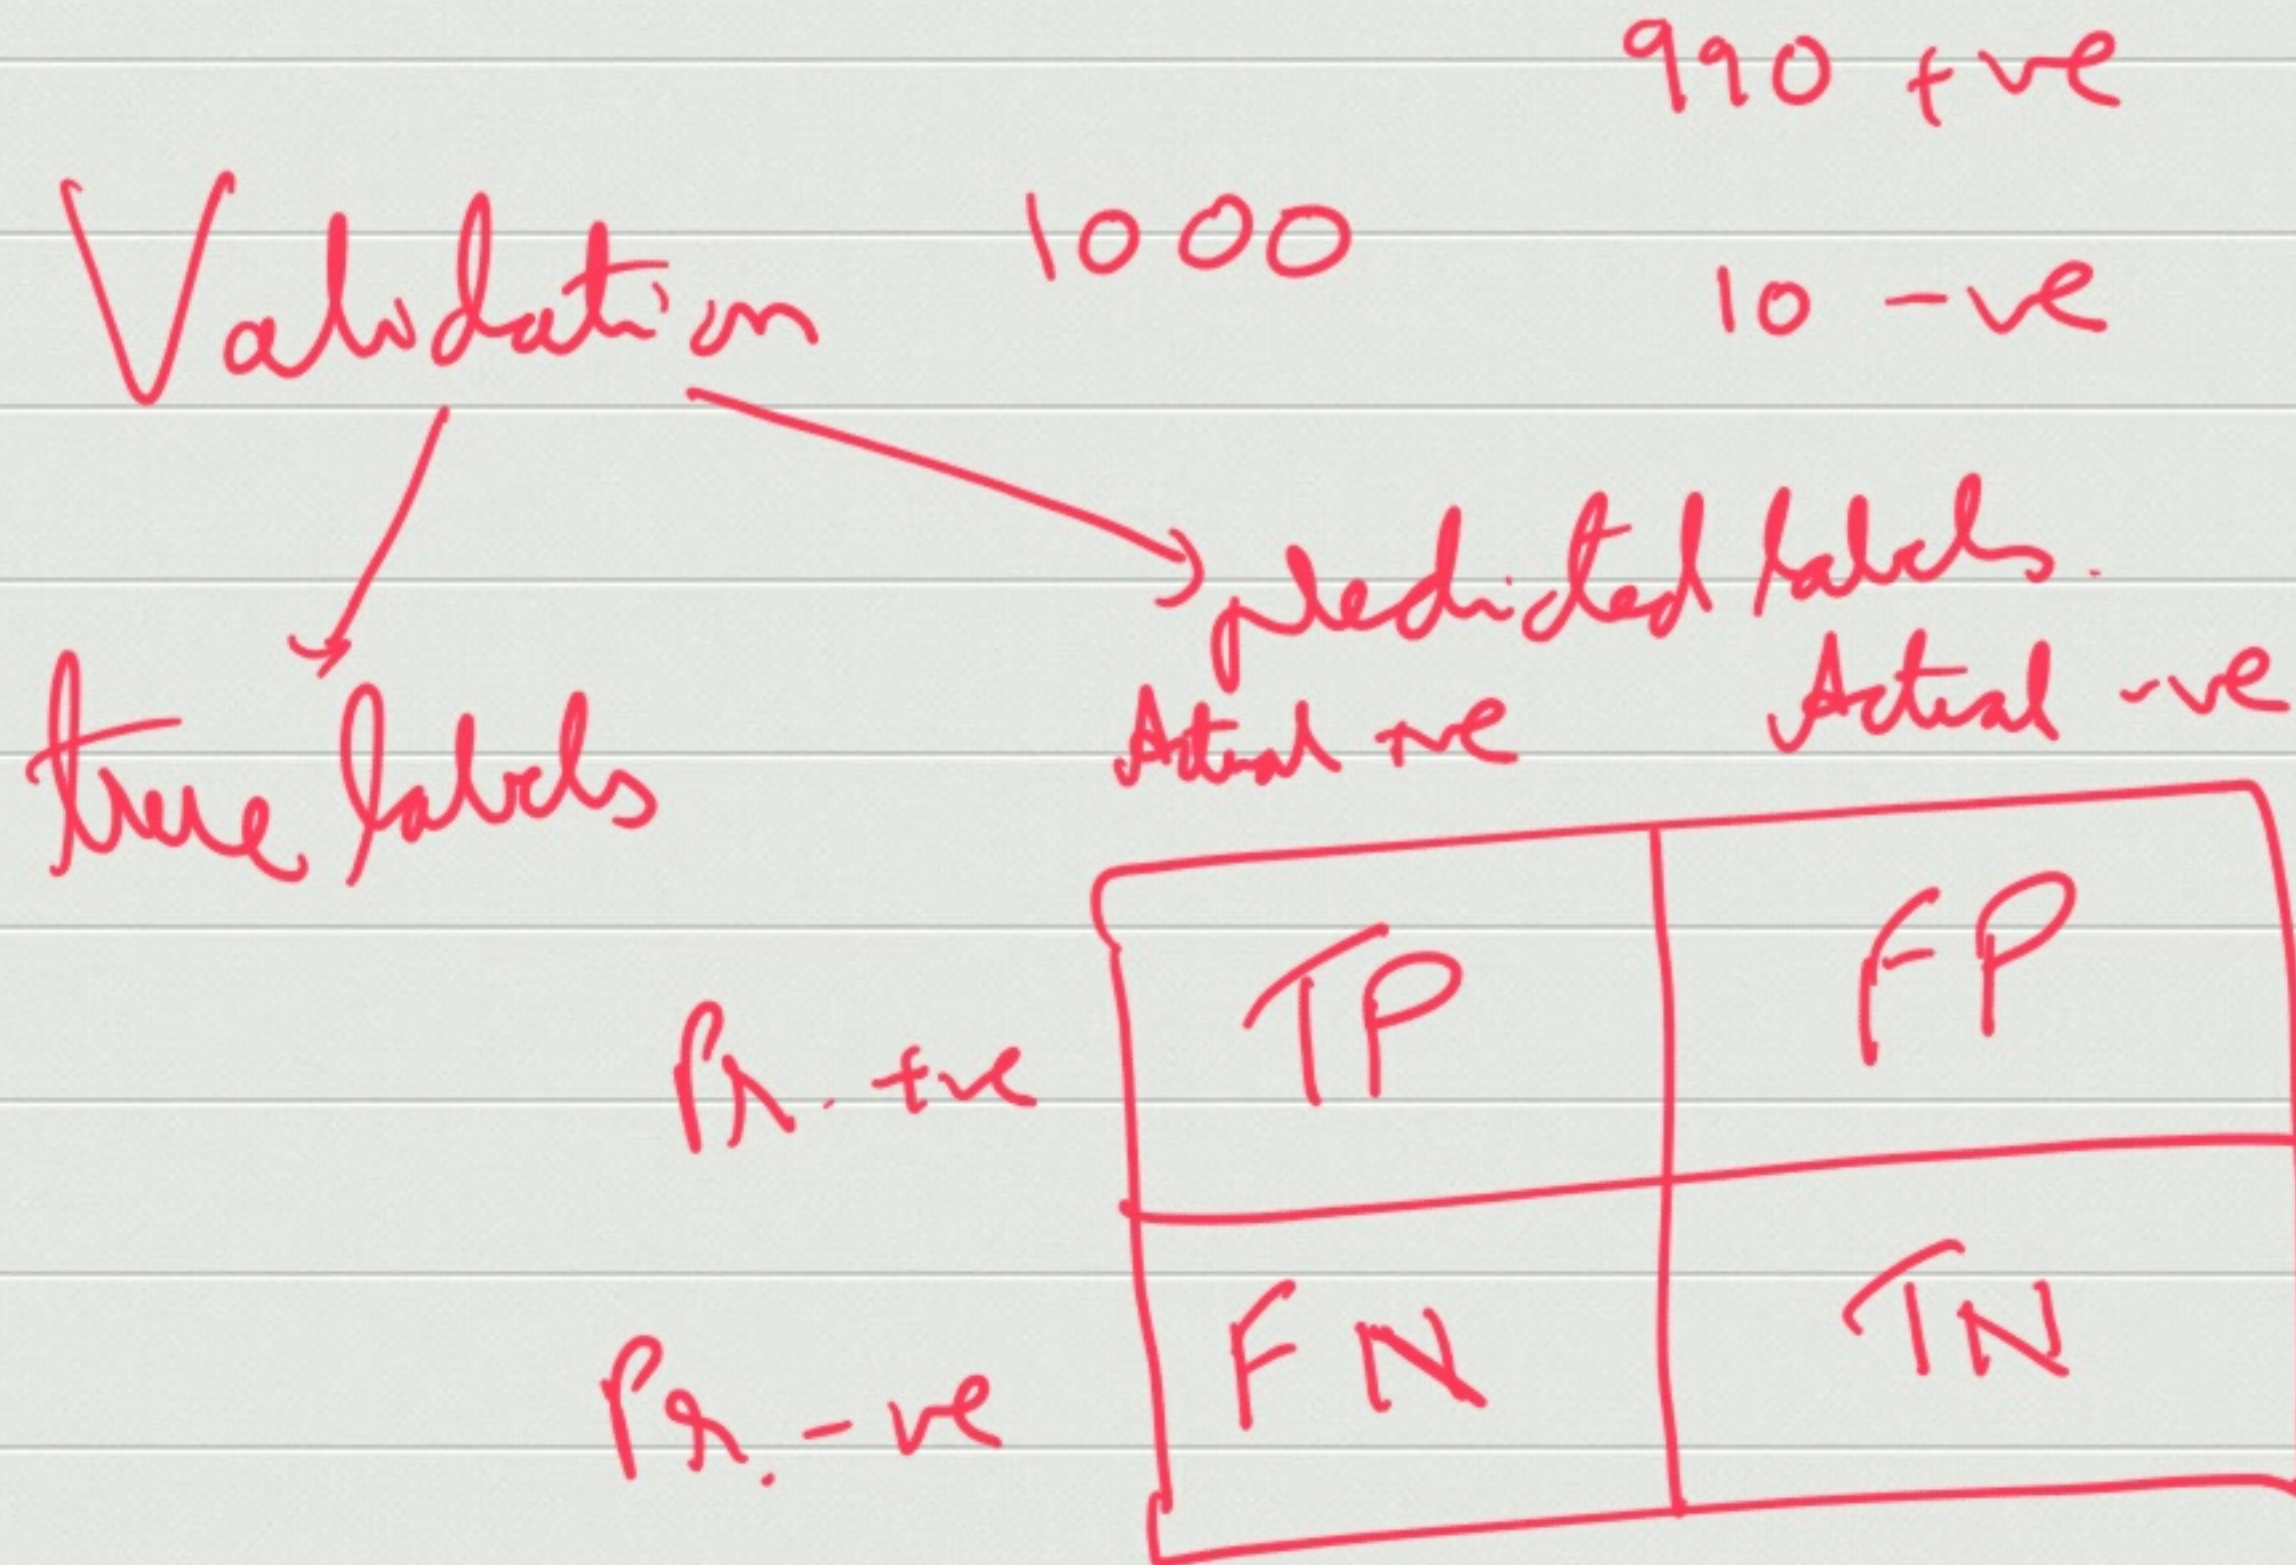 990 +ve
Validation 1000
10 -ve
predicted labels.
true labels
Actual +ve Actual -ve
TP FP
Pr. +ve
FN TN
Pr. -ve